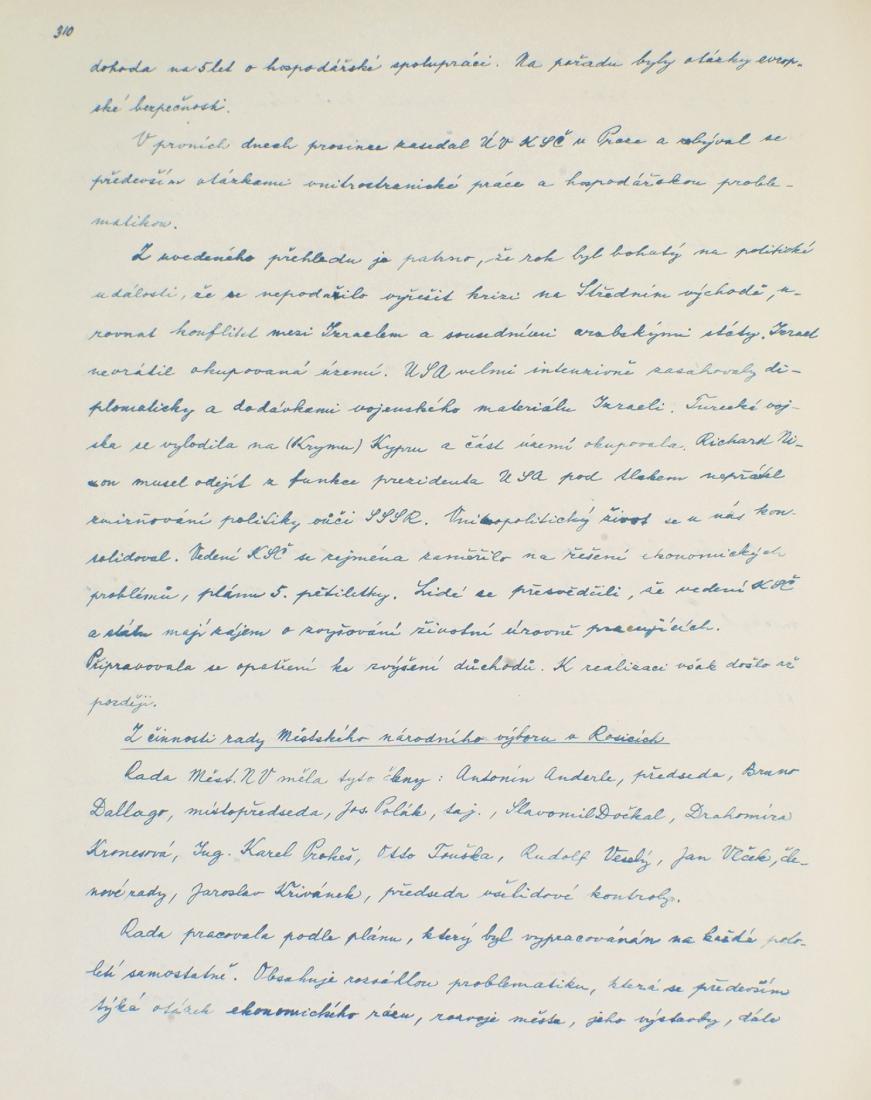 310
dohoda na 5 let o hospodářské spolupráci. Na pořadu byly otázky evrop-
ské bezpečnosti.
V prvních dnech prosince zasedal ÚV KSČ v Praze a zabýval se
především otázkami vnitrostranické práce a hospodářskou proble-
matikou.
Z uvedeného přehledu je patrno, že rok byl bohatý na politické
události, že se nepodařilo vyřešit krizi na Středním východě, u-
rovnat konflikt mezi Izraelem a sousedními arabskými státy. Izrael
nevrátil okupovaná území. USA velmi intenzivně zasahovaly di-
plomaticky a dodávkami vojenského materiálu Izraeli. Turecké voj-
ska se vylodila na (Krymu) Kypru a část území okupovala. Richard Ni-
xon musel odejít z funkce prezidenta USA pod tlakem nepřátel
zmírňování politiky vůči SSSR. Vnitropolitický život se u nás kon-
solidoval. Vedení KSČ se zejména zaměřilo na řešení ekonomických
problémů, plánu 5. pětiletky. Lidé se přesvědčili, že vedení KSČ
a státu mají zájem o zvyšování životní úrovně pracujících.
Připravovala se opatření ke zvýšení důchodů. K realizaci však došlo až
později.
Z činnosti rady Městského národního výboru v Rosicích
Rada Měst. NV měla tyto členy: Antonín Anderle, předseda, Bruno
Dallago, místopředseda, Jos. Polák, taj., Slavomil Dočkal, Drahomíra
Kronesová, Ing. Karel Prokeš, Otto Touška, Rudolf Veselý, Jan Vlček, čle-
nové rady, Jaroslav Křivánek, předseda všelidové kontroly.
Rada pracovala podle plánu, který byl vypracovánán na každé polo-
letí samostatně. Obsahuje rozsáhlou problematiku, která se především
týká otázek ekonomického rázu, rozvoje města, jeho výstavby, dále